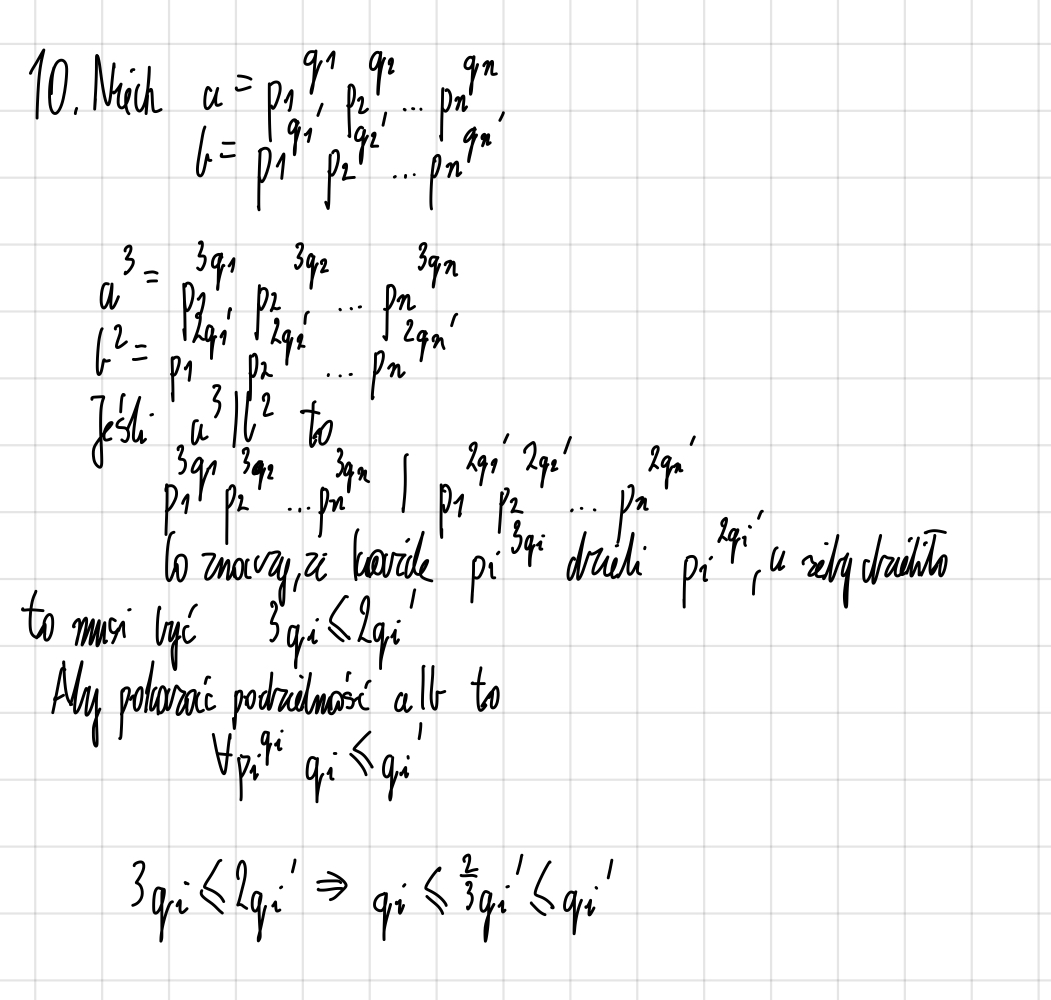 10. Niech a = p1^q1 p2^q2 ... pn^qn
b = p1^q1' p2^q2' ... pn^qn'
a^3 = p1^3q1 p2^3q2 ... pn^3qn
b^2 = p1^2q1' p2^2q2' ... pn^2qn'
Jeśli a^3 | b^2 to
p1^3q1 p2^3q2 ... pn^3qn | p1^2q1' p2^2q2' ... pn^2qn'
to znaczy, że każde pi^3qi dzieli pi^2qi', a żeby dzieliło
to musi być 3qi ≤ 2qi'
Aby pokazać podzielność a|b to
∀pi^qi qi ≤ qi'
3qi ≤ 2qi' ⇒ qi ≤ 2/3 qi' ≤ qi'